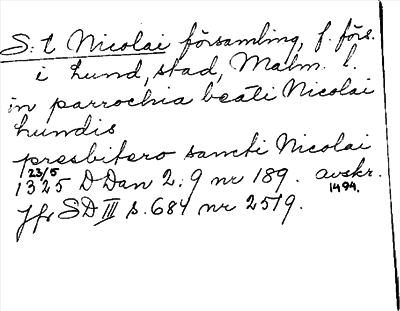 S:t Nicolai församling, f. förs.
i Lund, stad, Malm. l.
in parrochia beati Nicolai
Lundis
presbitero sancti Nicolai
23/5
1325 DDan 2:9 nr 189. avskr. 1494.
Jfr SD III s. 684 nr 2519.